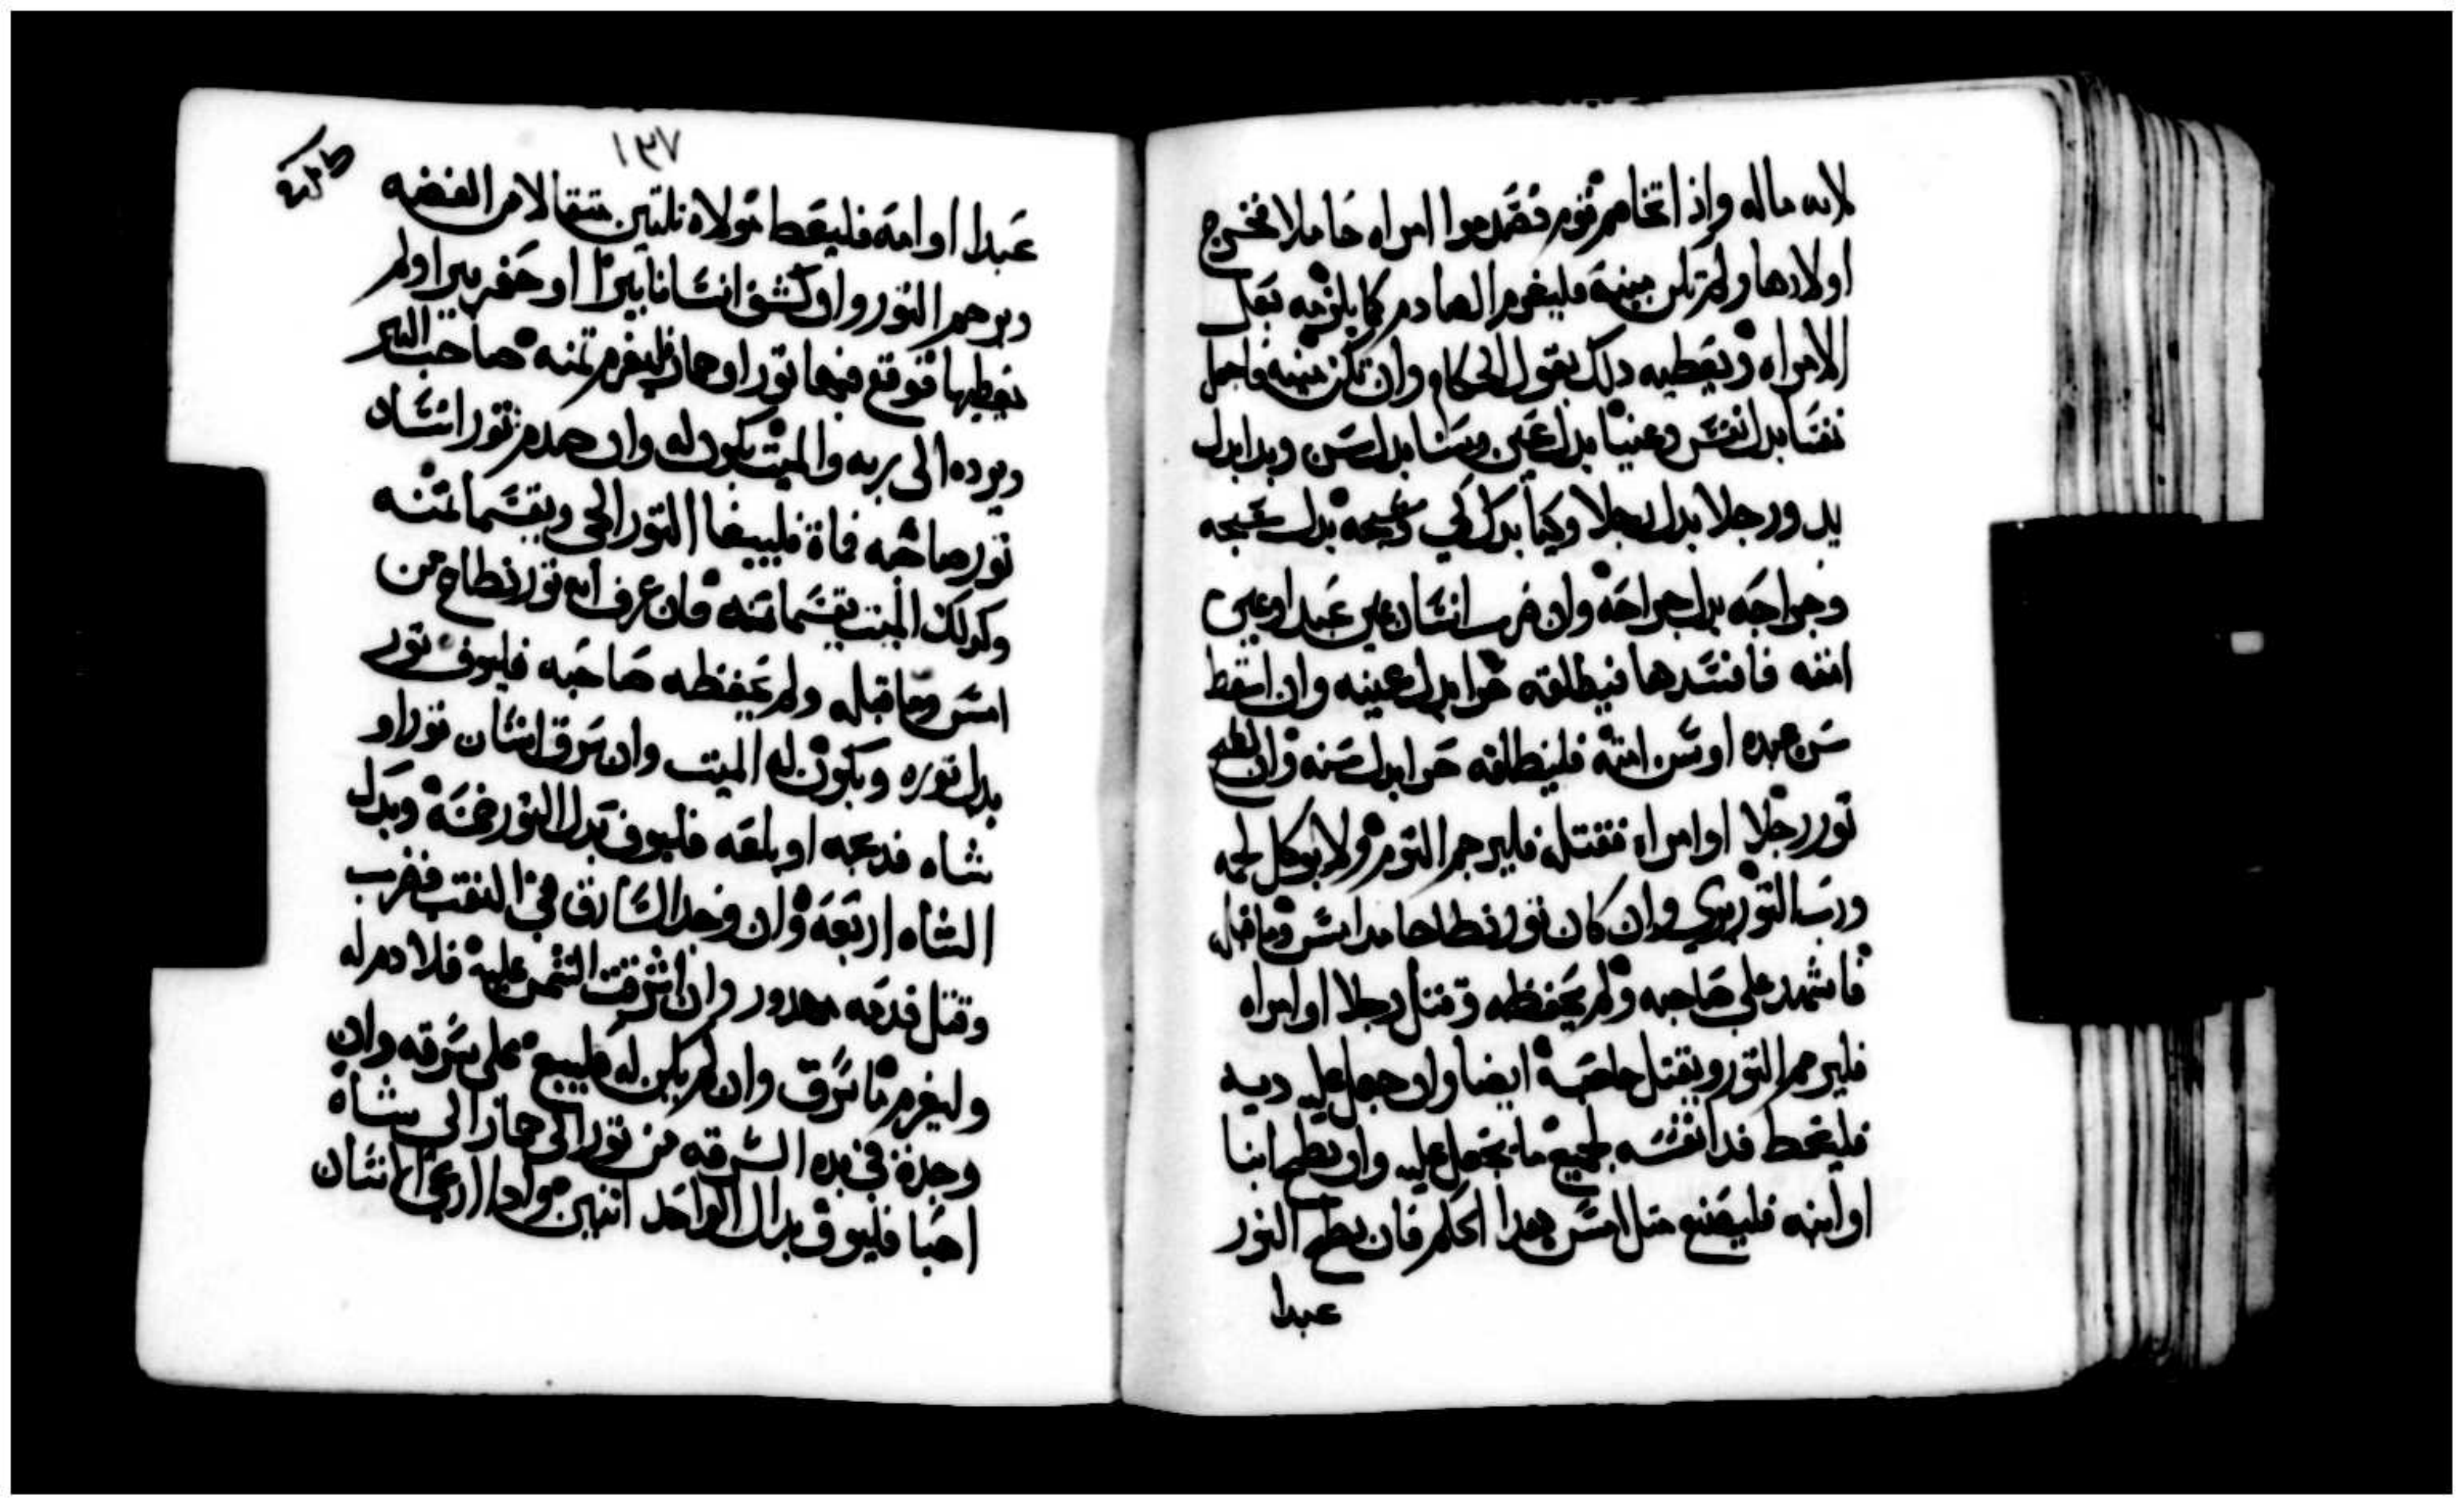 لانه ماله واذا تخاصم قوم فصدموا امراه حاملا فخرج
اولادها ولم تكن مبينة فليغرم الصادم كما يلزمه بعل
الامراه ويعطيه دلك بقول الحكام وان تكن مبينه فاجعل
نفسا بدل نفس وعينا بدل عين وسنا بدل سن ويدا بدل
يد ورجلا بدل رجلا وكيا بدل كي وشجه بدل شجه
وجراحه بدل جراحه وان ضرب انسان عين عبده او عين
امته فافسدها فيطلقه حرا بدل عينه وان اسقط
سن عبده او سن امته فليطلقه حرا بدل سنه وان نطح
تور رجلا او امراه فقتله فليرجم التور ولا يوكل لحمه
ورب التور بري وان كان تور نطاحا مدامس وما قبله
فاشهد على صاحبه ولم يحفظه وقتل رجلا او امراه
فليرجم التور ويقتل صاحبه ايضا وان جعل عليه ديه
فليعط فدا نفسه لجميع ما يجعل عليه وان نطح ابنا
او ابنه فليصنع متل امس بهدا الحكم فان نطح التور
عبدا
١٣٧
عبدا او امة فليعط مولاه تلتين متقالا من الفضه
ويرجم التور وان كشف انسانا بيرا او حفر بيرا ولم
يغطيها فوقع فيها تور او حمار فليغرم تمنه صاحب البير
ويرده الى ربه والميت يكون له وان صدم تور انسان
تور صاحبه فماة فليبيعا التور الحي ويقسما تمنه
وكدلك الميت يقسما تمنه فان عرف انه تور نطاح من
امس وما قبله ولم يحفظه صاحبه فليوف تور
بدل توره ويكون له الميت وان سرق انسان تورا او
شاه فدبحه او باعه فليوف بدل التور خمسة وبدل
الشاه اربعة وان وجد السارق في النقب فضرب
وقتل فدمه مهدور وان اشرقت الشمس عليه فلا دم له
وليغرم ما سرق وان لم يكن له فليبيع على سرقه وان
وجدة في يده السرقه من تور الى حمار الى شاه
احيا فليوف بدل الواحد اتنين وادا ارعى انسان